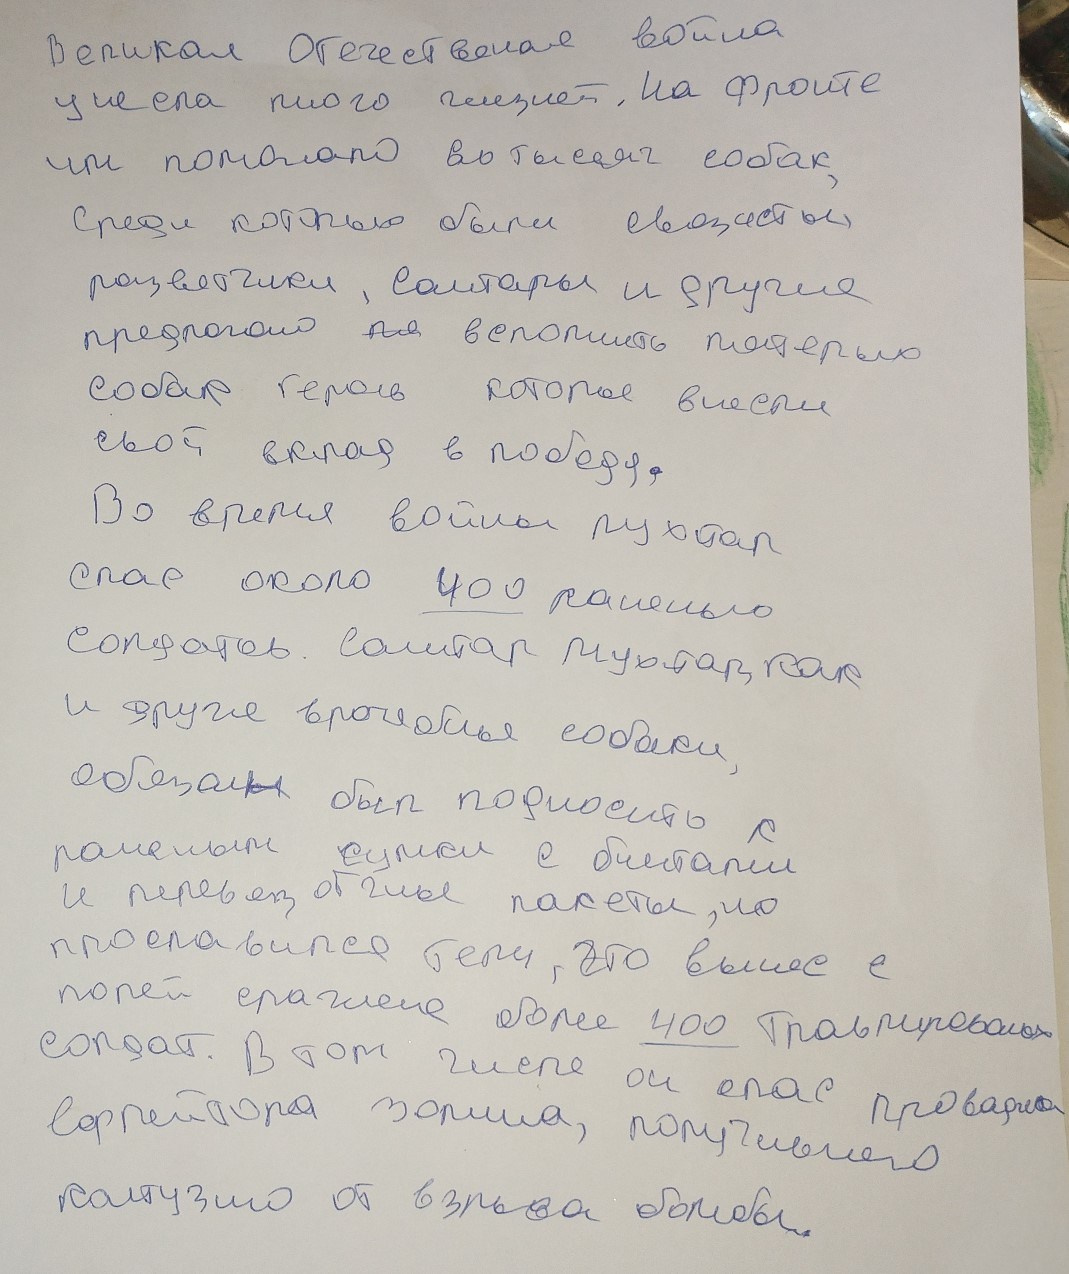 Великая Отечественая война
унесла много жизней. На фронте
им помогало 60 тысяч собак,
среди которых были связисты,
разветчики, санитары и другие
предлогаю на вспомнить матерых
собак героев которые внесли
свой вклад в победу.
Во время войны мухтар
спас около 400 раненых
солдатов. Санитар Мухтар, как
и друге врочебные собаки,
обязан был подносить к
раненым сумки с бинтами
и перевязотчные пакеты, но
прославился тем, что вынес с
полей сражене более 400 травмированых
солдат. В том числе он спас провадника
ефрейтора зорина, получившего
контузию от взрыва бомбы.